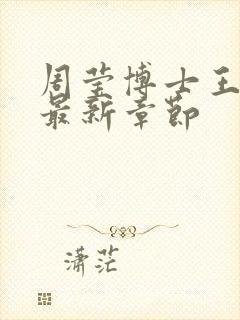 周莹博士王
最新章节
潇茫